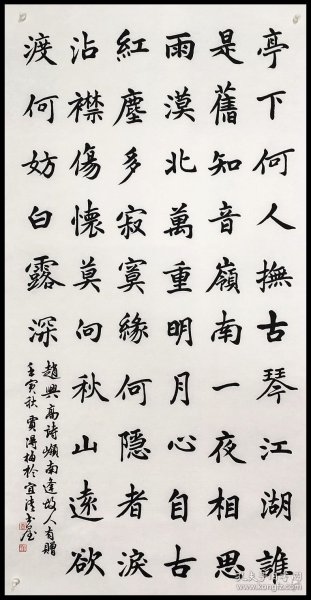 亭下何人撫古琴江湖誰
是舊知音嶺南一夜相思
雨漠北萬重明月心自古
紅塵多寂寞緣何隱者淚
沾襟傷懷莫向秋山遠欲
渡何妨白露深
趙興高詩嶺南逢故人有贈
壬寅秋賈於宜